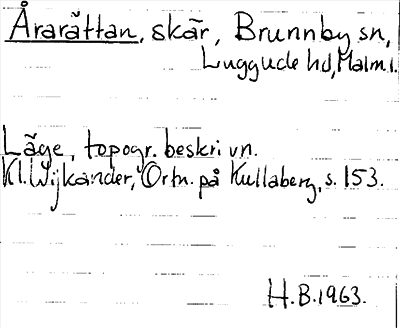 Årarättan, skär, Brunnby sn,
Luggude hd, Malm. l.
Läge, topogr. beskrivn.
Kl. Wijkander, Ortn. på Kullaberg, s. 153.
H.B. 1963.